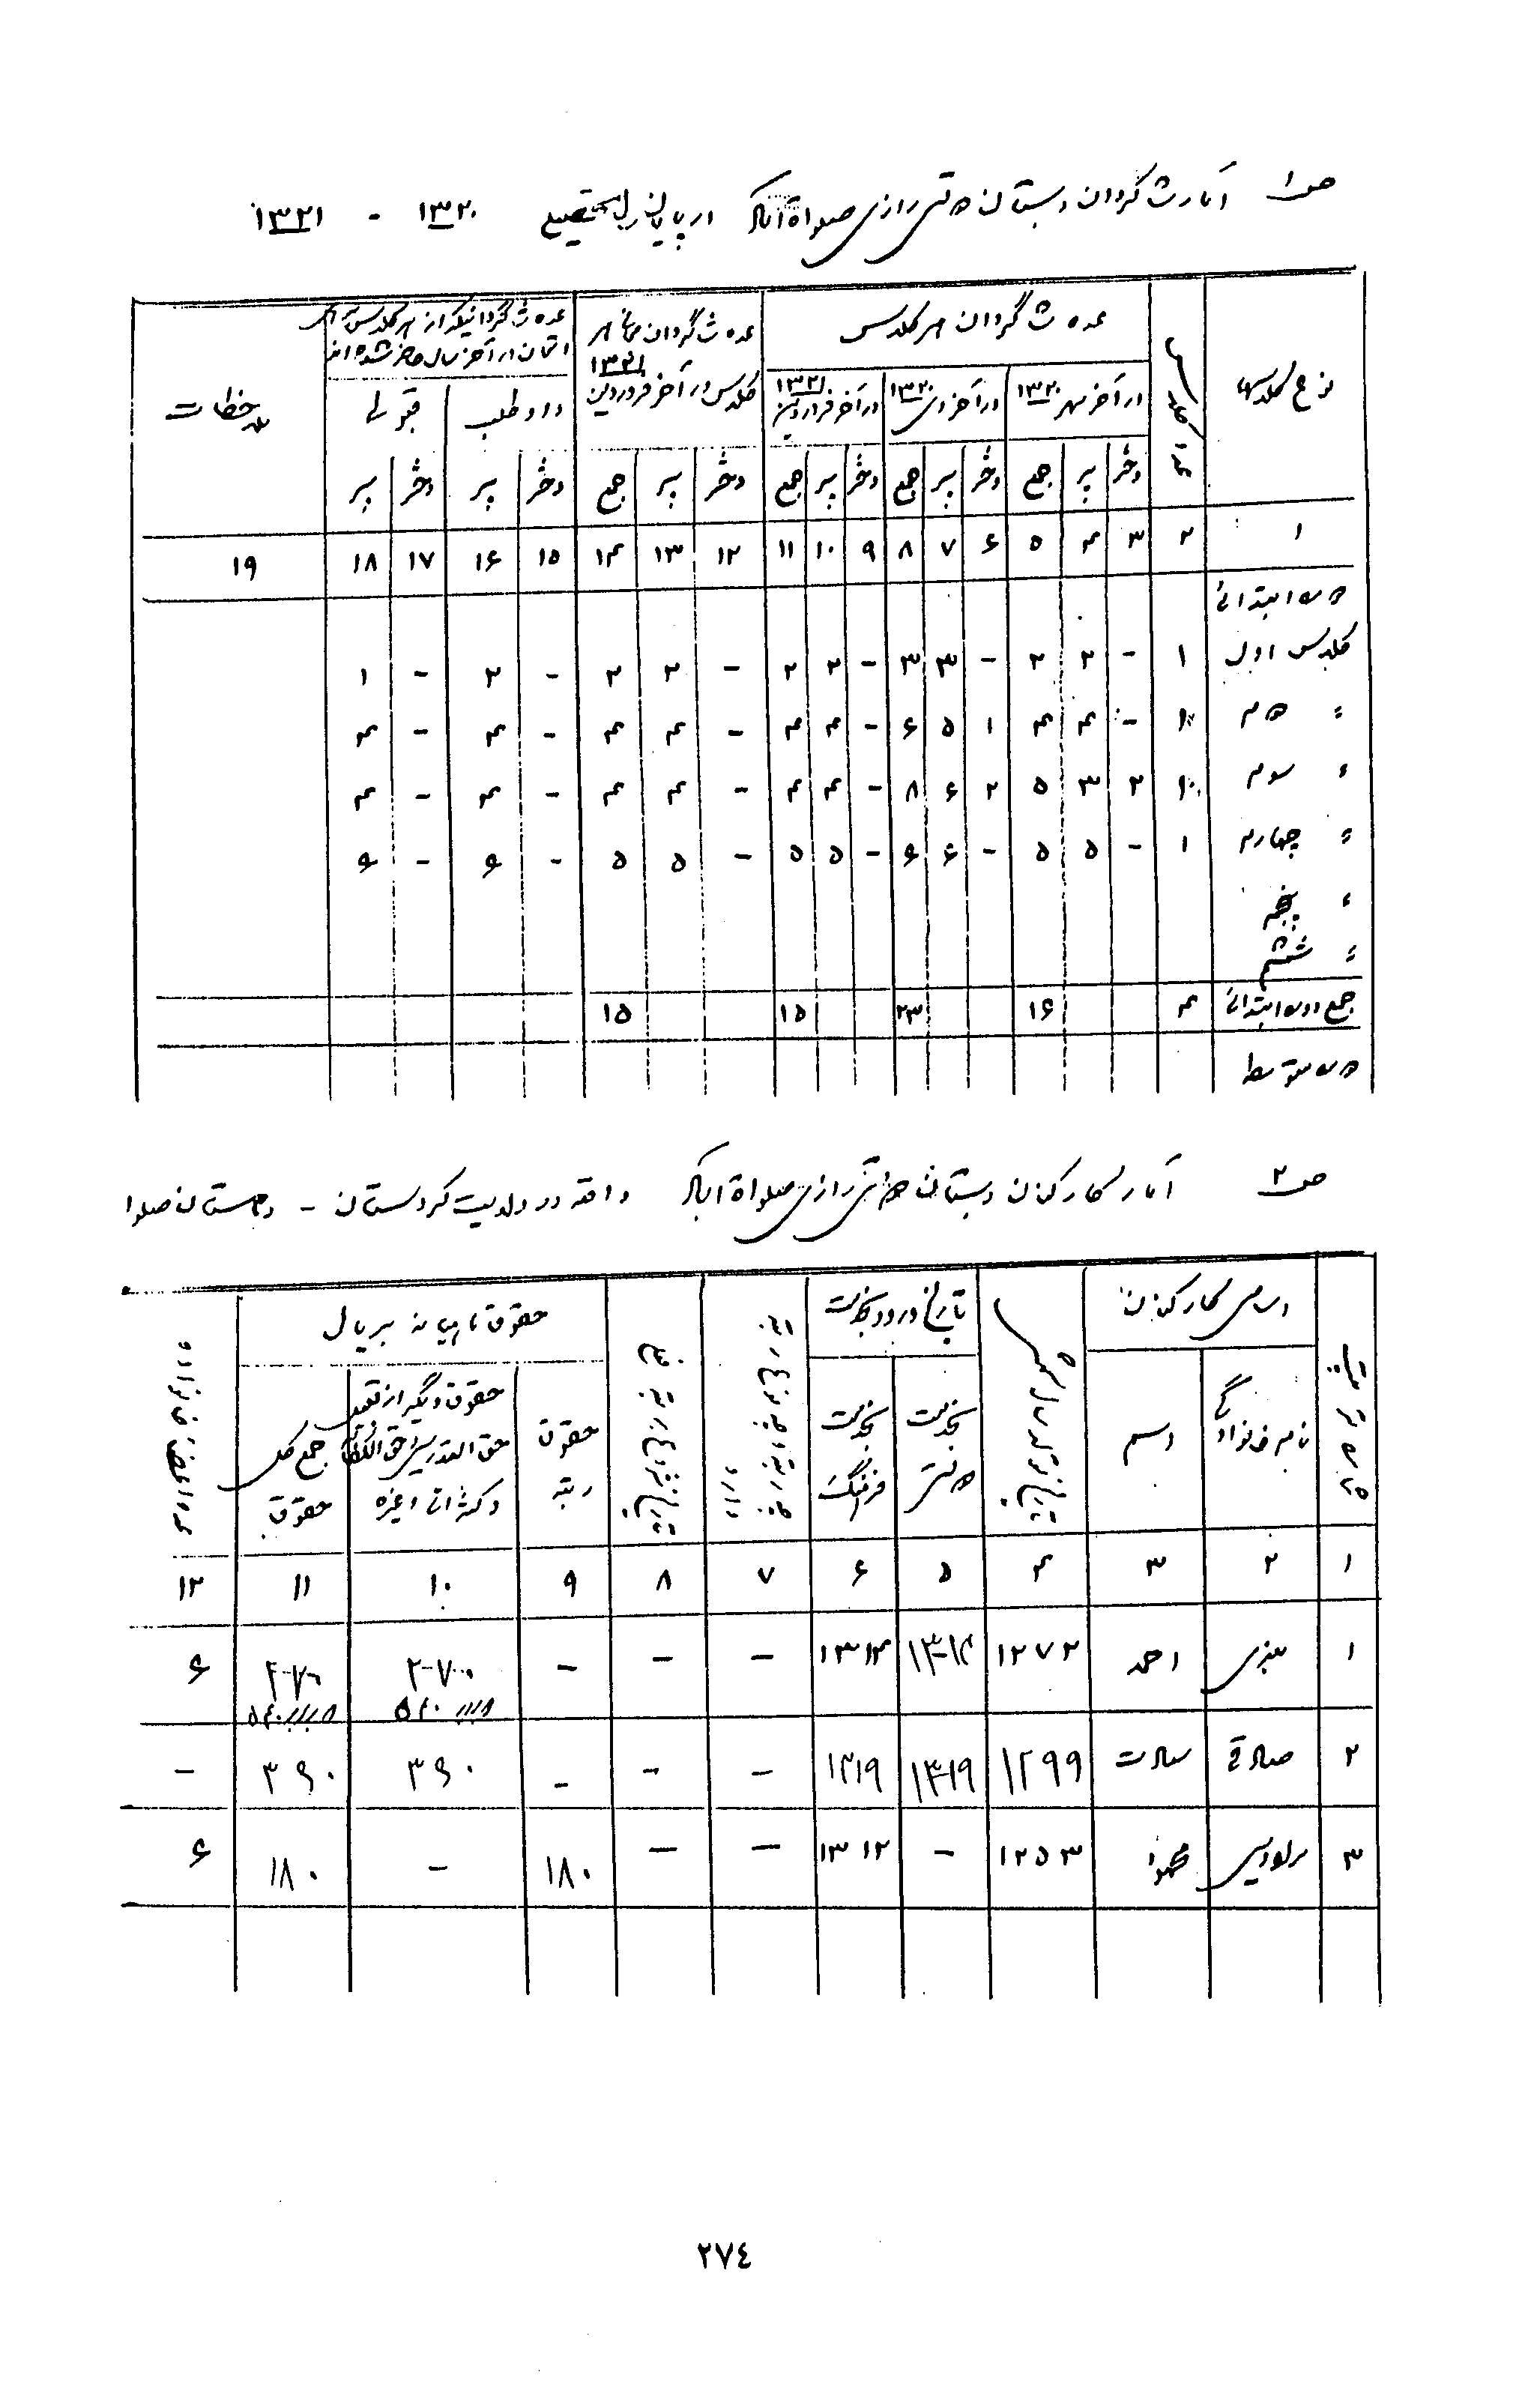 ص ۱ آمار شاگردان دبستان دولتی رازی صلواة آباد در پایان سال تحصیلی ۱۳۲۰ - ۱۳۲۱
نوع کلاسها
عده شاگردان هر کلاس
در آخر مهر ۱۳۲۰
در آخر دی ۱۳۲۰
در آخر فروردین ۱۳۲۱
عده شاگردان هر کلاس در آخر فروردین ۱۳۲۱
عده شاگردانیکه از هر کلاس برای امتحان در آخر سال حاضر شده اند
داوطلب قبولی
ملاحظات
دختر پسر جمع دختر پسر جمع دختر پسر جمع دختر پسر جمع دختر پسر دختر پسر
۱ ۲ ۳ ۴ ۵ ۶ ۷ ۸ ۹ ۱۰ ۱۱ ۱۲ ۱۳ ۱۴ ۱۵ ۱۶ ۱۷ ۱۸ ۱۹
دوره ابتدائی
کلاس اول ۱ - ۲ ۲ - ۳ ۳ - ۲ ۲ - ۲ ۲ - ۲ - ۱
〃 دوم ۱ - ۴ ۴ ۱ ۵ ۶ - ۴ ۴ - ۴ ۴ - ۴ - ۴
〃 سوم ۱ ۲ ۳ ۵ ۲ ۶ ۸ - ۴ ۴ - ۴ ۴ - ۴ - ۴
〃 چهارم ۱ - ۵ ۵ - ۶ ۶ - ۵ ۵ - ۵ ۵ - ۶ - ۶
〃 پنجم
〃 ششم
جمع دوره ابتدائی ۴ ۱۶ ۲۳ ۱۵ ۱۵
دوره متوسطه
ص ۲ آمار کارکنان دبستان دولتی رازی صلواة آباد واقعه در ولایت کردستان - دهستان صلوا
شماره ترتیب
اسامی کارکنان
نام خانوادگی اسم
تاریخ ورود بخدمت
بخدمت دولت بخدمت فرهنگ
حقوق ماهیانه بریال
حقوق رتبه
حقوق دیگر از قبیل حق التدریس حق الکفاله و کمک اثاث و غیره
جمع کل حقوق
۱ ۲ ۳ ۴ ۵ ۶ ۷ ۸ ۹ ۱۰ ۱۱ ۱۲
۱ احمد ۱۲۷۲ ۱۳۱۲ ۱۳۱۲ - - - ۶
۲ صادقی سادات ۱۲۹۹ ۱۳۱۹ ۱۳۱۹ - - - ۳۹۰ ۳۹۰ -
۳ محمود ۱۲۵۳ - ۱۳۱۲ - - ۱۸۰ - ۱۸۰ ۶
٢٧٤